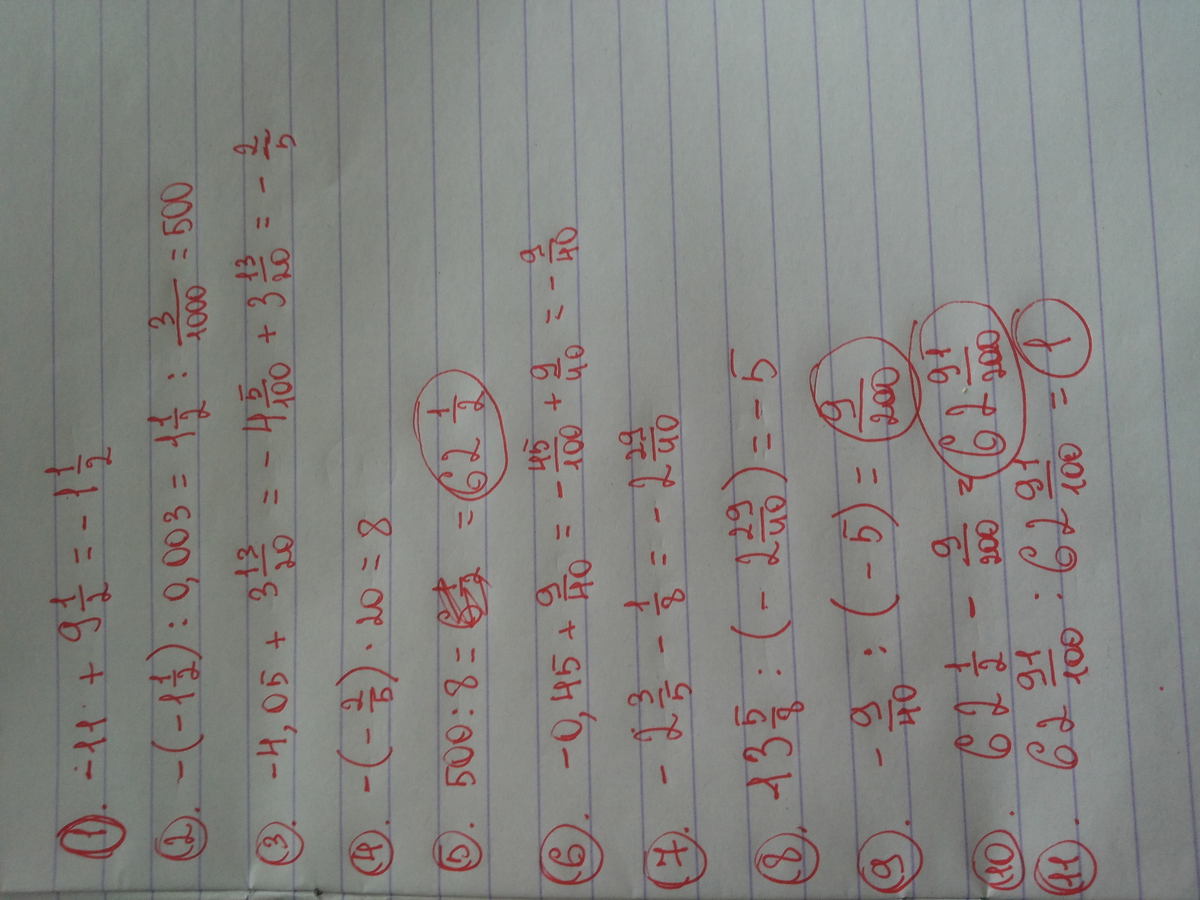 1. -11 + 9 1/2 = -1 1/2
2. -(-1 1/2) : 0,003 = 1 1/2 : 3/1000 = 500
3. -4,05 + 3 13/20 = -4 5/100 + 3 13/20 = -2/5
4. -(-2/5) · 20 = 8
5. 500 : 8 = = 62 1/2
6. -0,45 + 9/40 = -45/100 + 9/40 = -9/40
7. -2 3/5 - 1/8 = -2 29/40
8. 13 5/8 : (-2 29/40) = -5
9. -9/40 : (-5) = 9/200
10. 62 1/2 - 9/200 = 62 91/200
11. 62 91/100 : 62 91/100 = 1